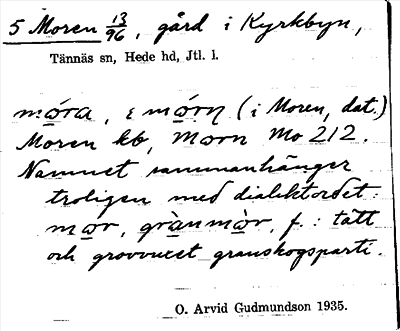 5 Moren 13/96, gård i Kyrkbyn,
Tännäs sn, Hede hd, Jtl. l.
mo̱ra, i mo̱rn (i Moren, dat.)
Moren kb, Morn Mo 212.
Namnet sammanhänger
troligen med dialektordet:
mo̱r, grànmo̱r, f.: tätt
och grovvuxet granskogsparti.
O. Arvid Gudmundson 1935.